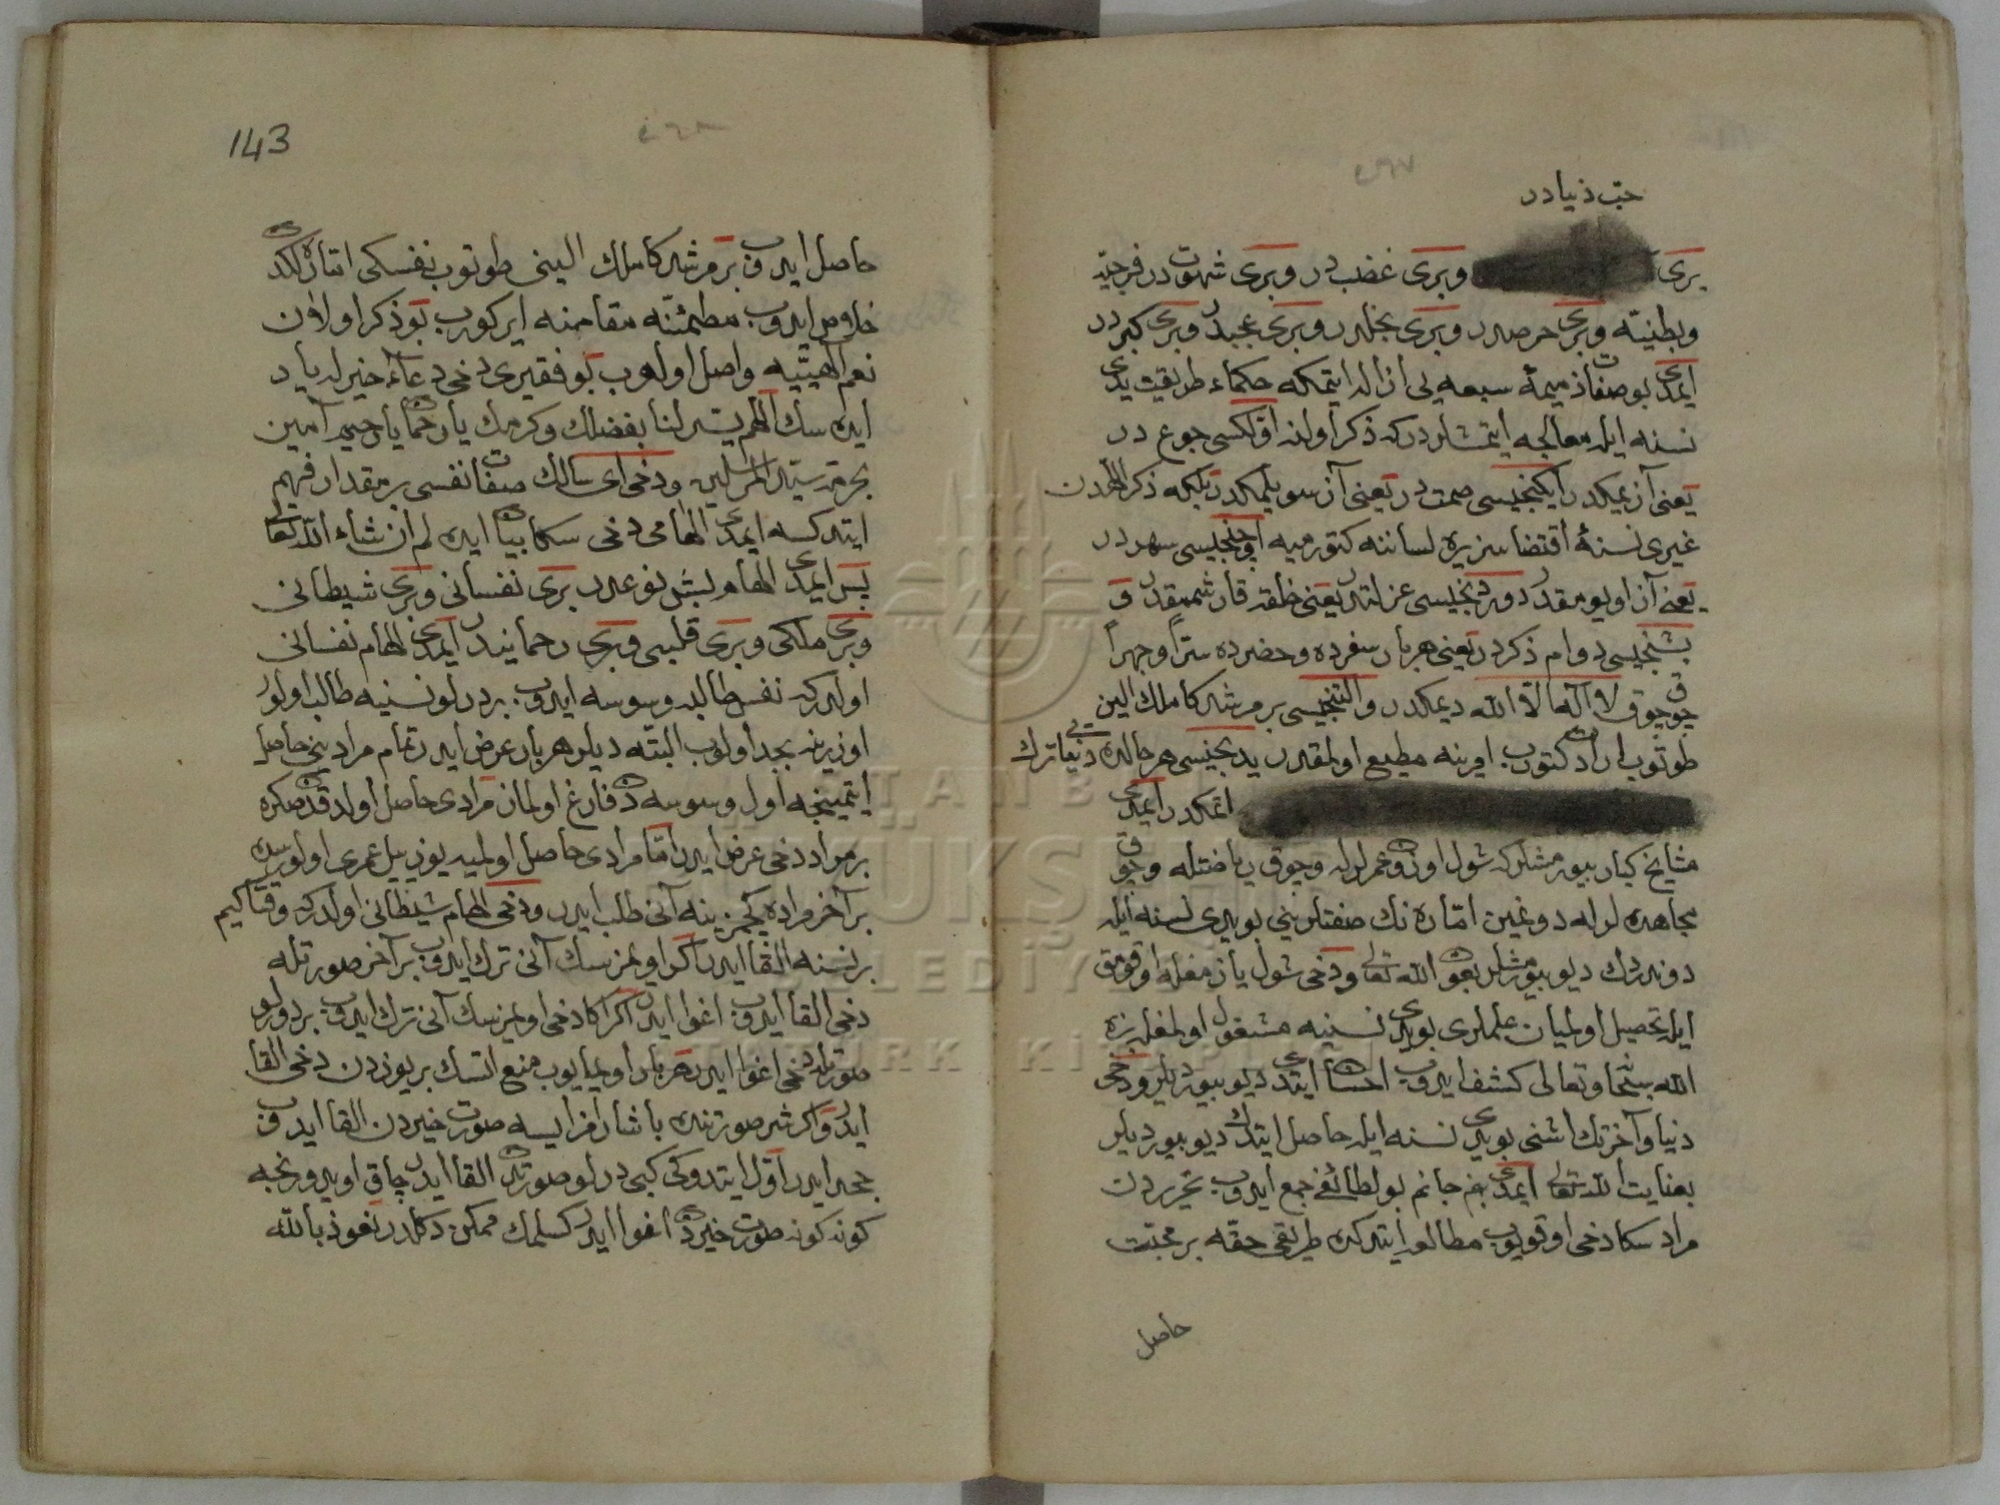 حب دنیادر
بری وبری غضب در وبری شهوت در فرجیه
وبطنیه وبری حرصدر وبری بخلدر وبری عجبدر وبری کبردر
ایمدی بو صفات ذمیمهٔ سبعه یی ازاله ایتمکه حکماء طریقت یدی
نسنه ایله معالجه ایتمشلردرکه ذکر اولنه اولکسی جوع در
یعنی آز یمکدر ایکنجیسی صمت در یعنی آز سویلمکدر بلکه ذکر اللهدن
غیری نسنهٔ اقتضاسزیره لساننه کتورمیه اوچنجیسی سهردر
یعنی آز اویومقدر دوردنجیسی عزلتدر یعنی خلقه قارشممقدر و
بشنجیسی دوام ذکردر یعنی هربار سفرده وحضرده سراً وجهراً
چوق چوق لا اله الا الله دیمکدر والتنجیسی بر مرشد کاملک الین
طوتوب ارادت کتوروب امرینه مطیع اولمقدر یدنجیسی هر حالده دنیایی ترک
اتمکدر ایمدی
مشایخ کبار بیورمشلرکه شول اوزون عمرلرله وچوق ریاضتله وچوق
مجاهده لرله دونمین اماره نک صفتلرینی بو یدی نسنه ایله
دوندردک دیو بیورمشلر بعون الله تعالی ودخی شول یازمغله اوقومق
ایله تحصیل اولمیان علملری بو یدی نسنیه مشغول اولمغله بزه
الله سبحانه وتعالی کشف ایدوب احسان ایتدی دیو بیوردیلر ودخی
دنیا وآخرتک اشنی بو یدی نسنه ایله حاصل ایتدک دیو بیوردیلر
بعنایت الله تعالی ایمدی بنم جانم بو لطائفی جمع ایدوب تحریردن
مراد سکا دخی اوقویوب مطالعه ایتدکده طریق حقه بر محبت
حاصل
143
حاصل ایدوب بر مرشد کاملک الینی طوتوب نفسکی اماره لکدن
خلاص ایدوب مطمئنه مقامنه ایرکوروب بو ذکر اولان
نعم الهیه یه واصل اولوب بو فقیری دخی دعاء خیرله یاد
ایده سک اللهم یسر لنا بفضلک وکرمک یا رحمان یا رحیم آمین
بحرمة سید المرسلین ودخی ای سالک صفات نفسی بر مقدار فهم
ایتدکسه ایمدی الهامی دخی سکا بیان ایده لم ان شاء الله تعالی
پس ایمدی الهام بش نوعدر بری نفسانی وبری شیطانی
وبری ملکی وبری قلبی وبری رحمانیدر ایمدی الهام نفسانی
اولدرکه نفس طالبه وسوسه ایدوب بر درلو نسنیه طالب اولور
اوزرینه مجد اولوب البته دیلر هربار عرض ایدر تمام مرادینی حاصل
ایتمینجه اول وسوسه دن فارغ اولماز مرادی حاصل اولدقدن صکره
بر مراد دخی عرض ایدر اما مرادی حاصل اولمیه یوز ییل عمری اولورسه
بر آخر مراده کچمز ینه آنی طلب ایدر ودخی الهام شیطانی اولدرکه وقتاکیم
بر نسنه القا ایدر اکر اویمزسک آنی ترک ایدوب بر آخر صورتله
دخی القا ایدوب اغوا ایدر اکر اکا دخی اویمزسک آنی ترک ایدوب بر درلو
صورتله دخی اغوا ایدر هربار اویمایوب منع اتسک بر یوزدن دخی القا
ایدر واکر شر صورتنده باشارمزایسه صورت خیردن القا ایدوب
جهد ایدر اول ایتدوکی کبی درلو صورتدن القا ایدر چاق اویدورنجه
کونه کونه صورت خیردن اغوا ایدر کسلمک ممکن دکلدر نعوذ بالله